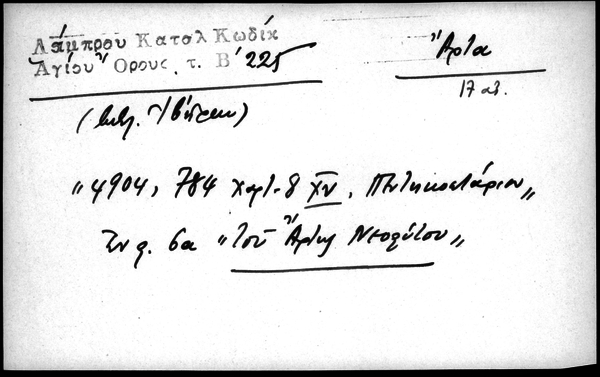 Λάμπρου Καταλ Κωδίκ
Ἁγίου Ὄρους, τ. Β' 225
Ἄρτα
17 αἰ.
(Βιβλ. Ἰβήρων)
"4904, 784 χαρτ. 8 XV, Πεντηκοστάριον"
Ἐν φ. 6α "τοῦ Ἄρτης Νεοφύτου"